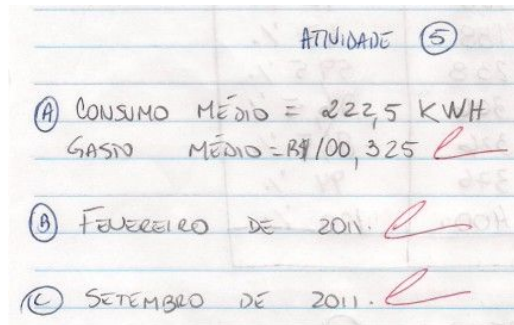 ATIVIDADE 5
A CONSUMO MÉDIO = 222,5 KWH
GASTO MÉDIO = R$ 100,325
B FEVEREIRO DE 2011.
C SETEMBRO DE 2011.